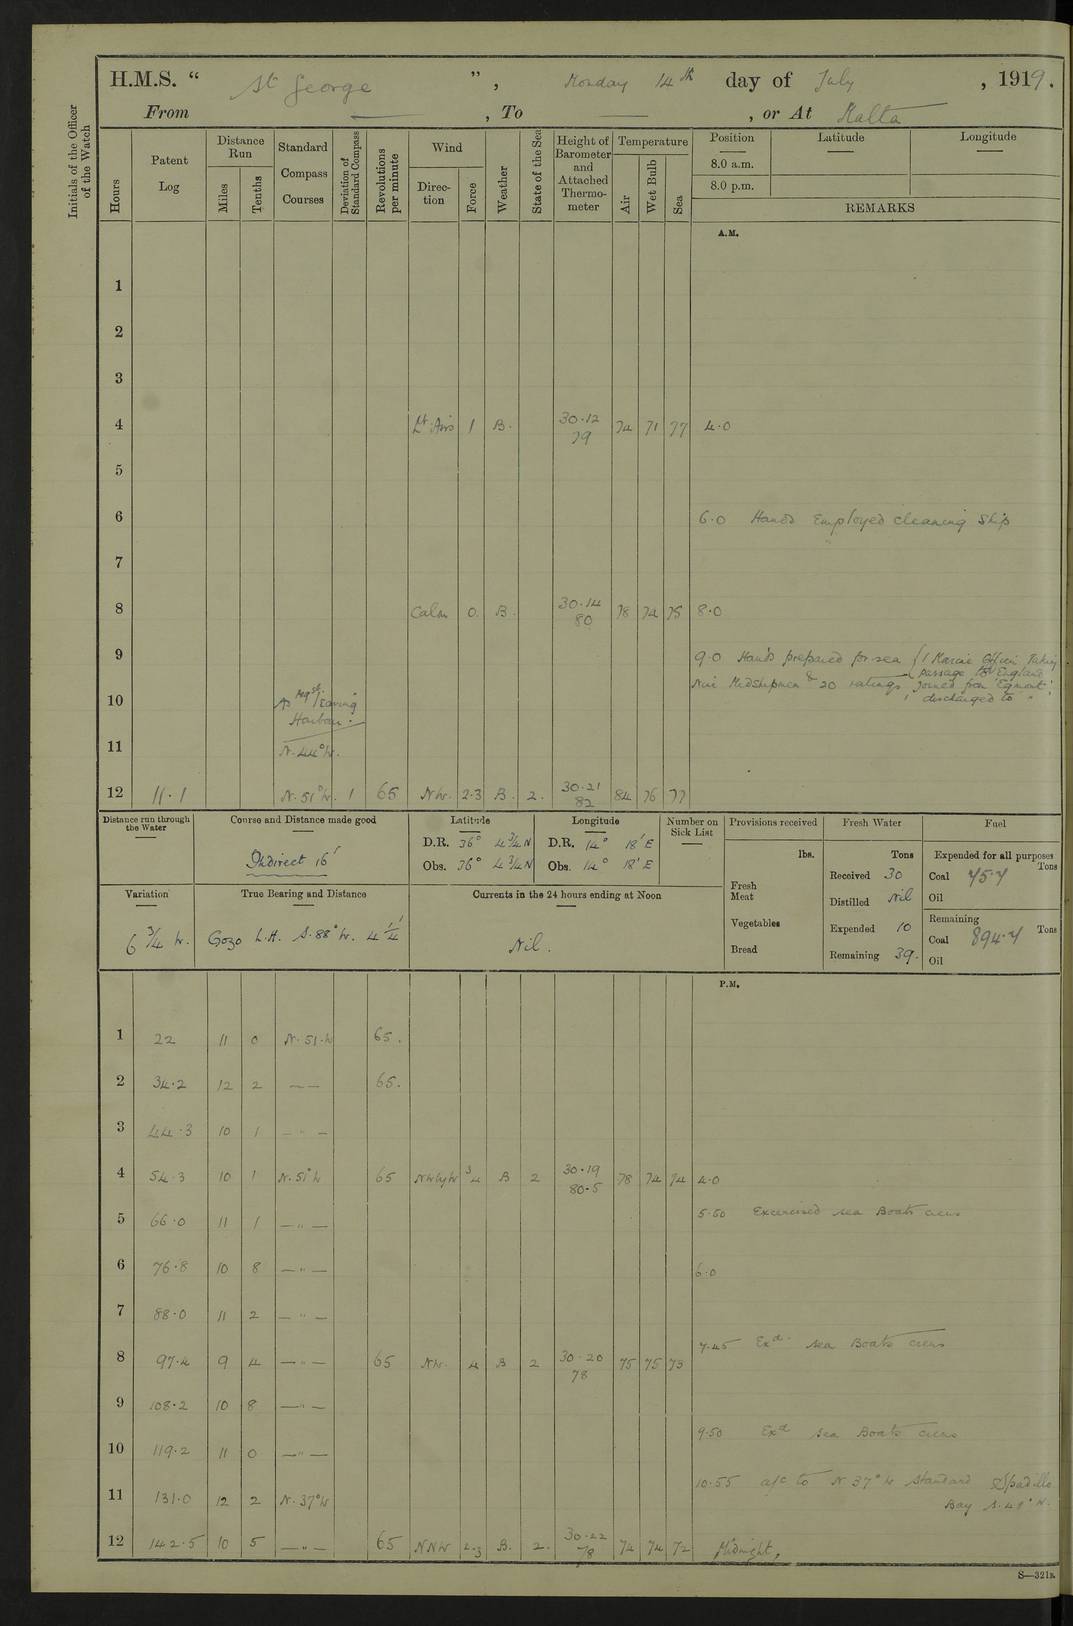 H.M.S. “ St George ”, Monday 14th day of July, 1919.
From —, To —, or At Malta
Initials of the Officer of the Watch
Hours
Patent Log
Distance Run
Miles
Tenths
Standard Compass Courses
Deviation of Standard Compass
Revolutions per minute
Wind
Direction
Force
Weather
State of the Sea
Height of Barometer and Attached Thermometer
Temperature
Air
Wet Bulb
Sea
Position Latitude Longitude
8.0 a.m.
8.0 p.m.
REMARKS
A.M.
1
2
3
4 Lt. Airs 1 B. 30.12 79 74 71 77 4.0
5
6 6.0 Hands Employed cleaning Ship
7
8 Calm 0. B. 30.14 80 78 74 75 8.0
9 9.0 Hands prepared for sea (1 Marine Officer Taking
passage to England
Midshipmen & 20 ratings joined from "Egmont"
discharged to "
10 As Reqst. Leaving
Harbour.
11 N.44°W.
12 11.1 N.51°W. 1 65 NW. 2.3 B. 2. 30.21 82 84 76 77
Distance run through the Water
Course and Distance made good
Indirect 16'
Latitude
D.R. 36° 4¾N
Obs. 36° 4¾N
Longitude
D.R. 14° 18' E
Obs. 14° 18' E
Number on Sick List
Provisions received
lbs.
Fresh Meat
Vegetables
Bread
Fresh Water
Tons
Received 30
Distilled Nil
Expended 10
Remaining 39.
Fuel
Expended for all purposes
Tons
Coal 45.7
Oil
Remaining
Coal 894.7 Tons
Oil
Variation
6¾ W.
True Bearing and Distance
Gozo L.H. S.88°W. 4¼'
Currents in the 24 hours ending at Noon
Nil.
P.M.
1 22 11 0 N.51.W 65.
2 34.2 12 2 — — 65.
3 44.3 10 1 — " —
4 54.3 10 1 N.51°W 65 NWbyW 3 4 B 2 30.19 80.5 78 74 74 4.0
5 66.0 11 1 — " — 5.50 Excercised sea Boats crews
6 76.8 10 8 — " — 6.0
7 88.0 11 2 — " —
8 97.4 9 4 — " — 65 NW. 4 B 2 30.20 78 75 75 73 7.45 Exd. sea Boats crews
9 108.2 10 8 — " —
10 119.2 11 0 — " — 9.50 Exd sea Boats crews
11 131.0 12 2 N.37°W 10.55 a/c to N 37° W Standard Spadillo
Bay S.49° W.
12 142.5 10 5 — " — 65 NNW 2.3 B. 2. 30.22 78 74 74 72 Midnight,
S—321B.